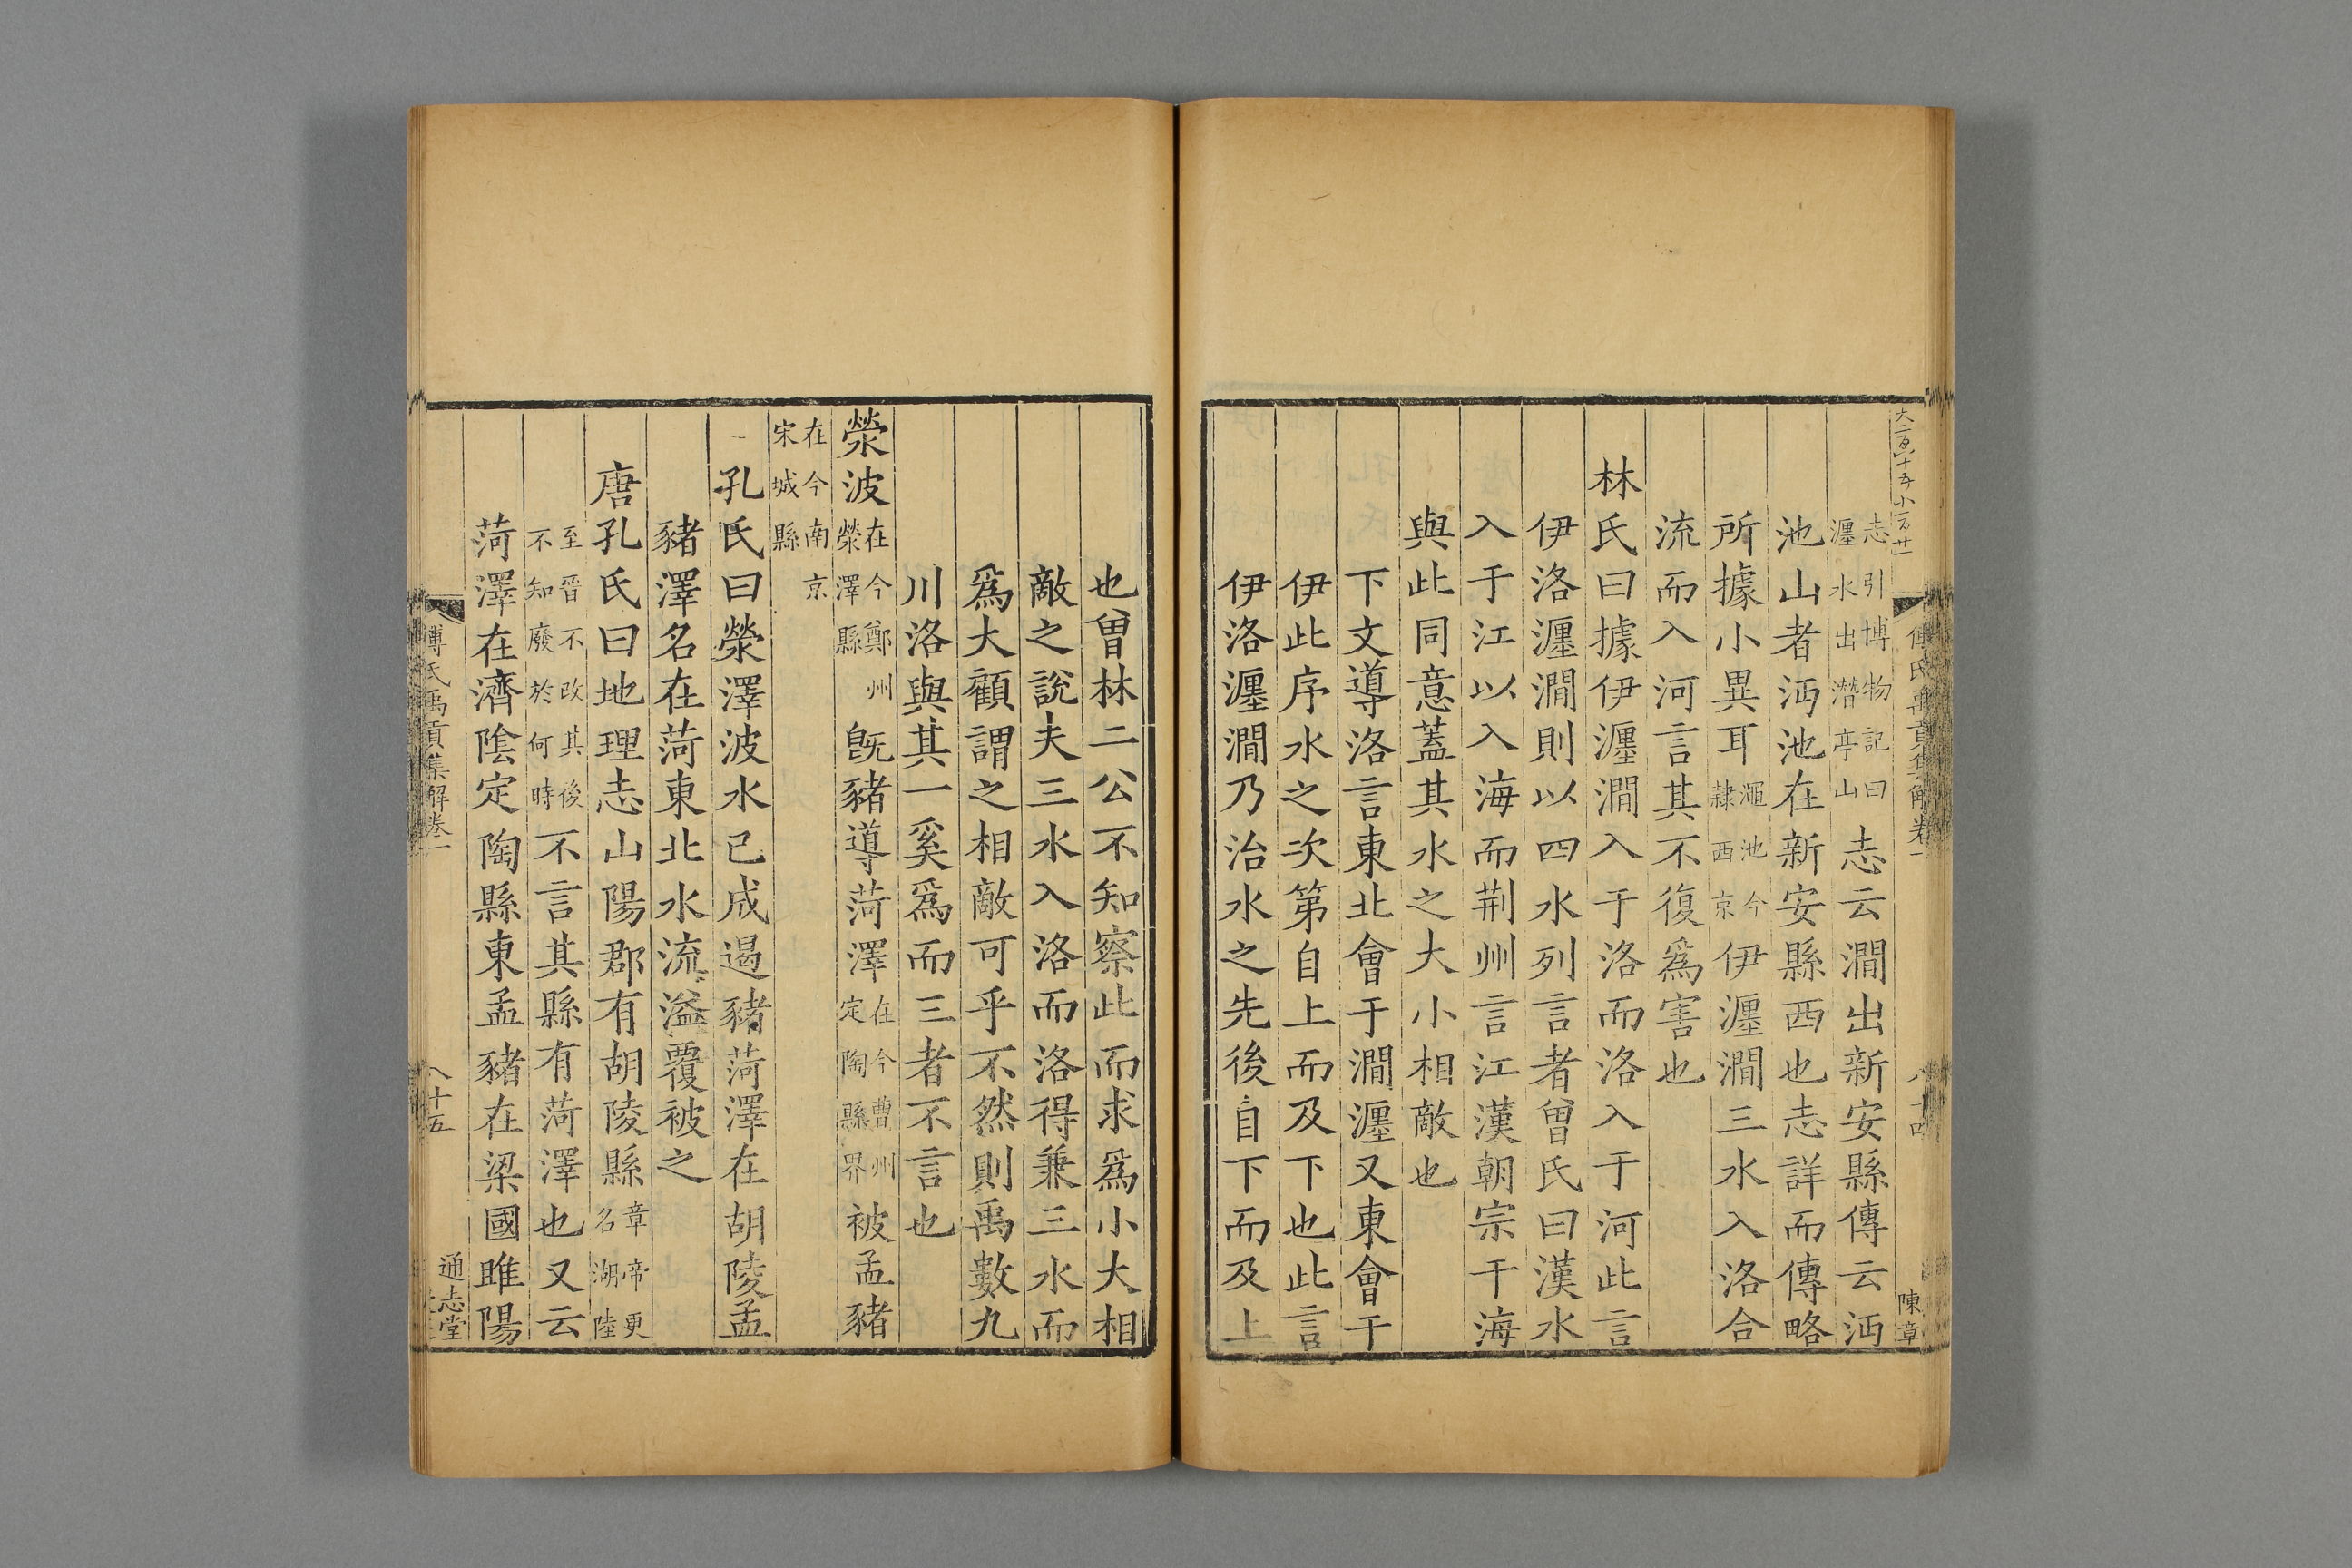 大二百六十五小一百廿一
傅氏禹貢集解卷一
陳章
志引博物記曰瀍水出潛亭山志云澗出新安縣傳云沔
池山者沔池在新安縣西也志詳而傳略
所據小異耳澠池今隸西京伊瀍澗三水入洛合
流而入河言其不復爲害也
林氏曰據伊瀍澗入于洛而洛入于河此言
伊洛瀍澗則以四水列言者曾氏曰漢水
入于江以入海而荆州言江漢朝宗于海
與此同意蓋其水之大小相敵也
下文導洛言東北會于澗瀍又東會于
伊此序水之次第自上而及下也此言
伊洛瀍澗乃治水之先後自下而及上
也曾林二公不知察此而求爲小大相
敵之說夫三水入洛而洛得兼三水而
爲大顧謂之相敵可乎不然則禹數九
川洛與其一奚爲而三者不言也
滎波在今鄭州滎澤縣既豬導菏澤在今曹州定陶縣界被孟豬
在今南京宋城縣
孔氏曰滎澤波水已成遏豬菏澤在胡陵孟
豬澤名在菏東北水流溢覆被之
唐孔氏曰地理志山陽郡有胡陵縣章帝更名湖陸
至晉不改其後不知廢於何時不言其縣有菏澤也又云
菏澤在濟陰定陶縣東孟豬在梁國睢陽
傅氏禹貢集解卷一
八十五
通志堂